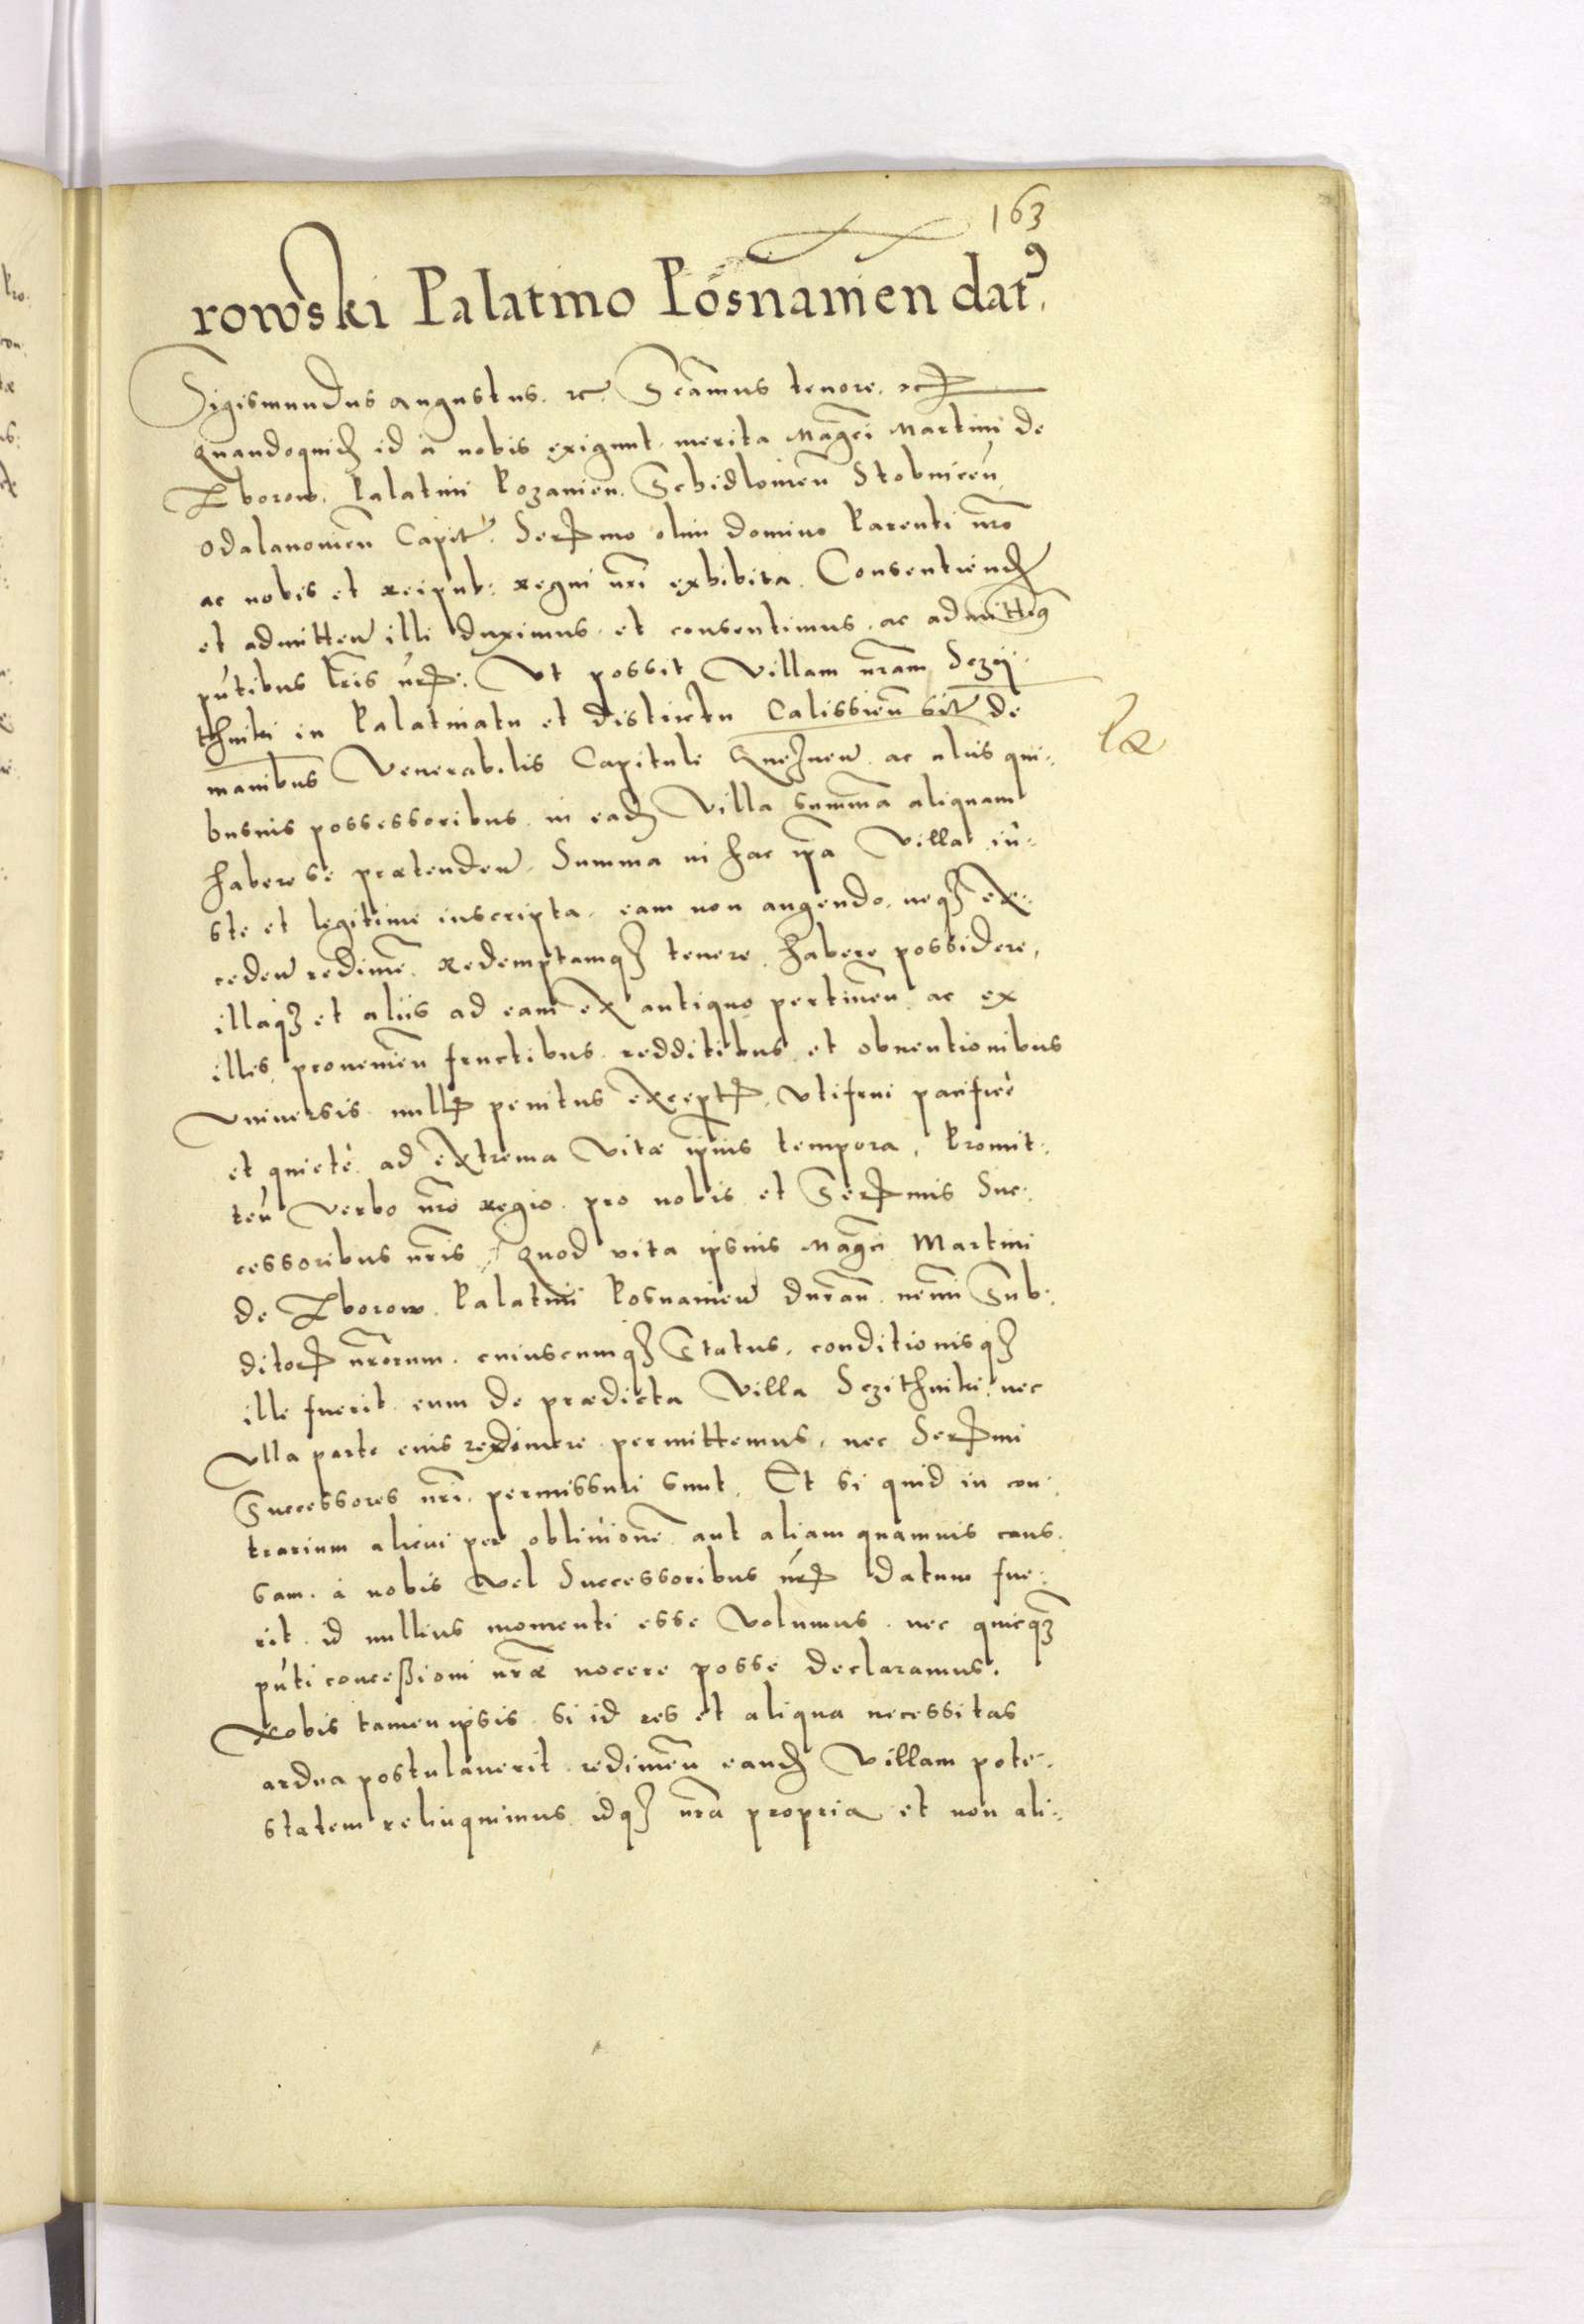 163
rowski Palatino Posnanien dat9.
Sigismundus augustus. rc. Scamus tenore. rc
Quandoquid id à nobis exigunt. merita Magci Martini de
Zborow. Palatini Pozanien. Schidlouien Stobnicen
Odalanouien Capit. Sermo olim domino Parenti nro
ac nobis et reipub: regni nri exhibita. Consentiend
et admitten illi duximus. et consentimus. ac admittim9
pntibus lris nris. Vt possit Villam nram Sczij
thniki in Palatinatu et districtu Calissien sit de
manibus Venerabilis Capituli Gneznen. ac aliis qui:
busuis possessoribus. in ead Villa summa aliquam
habere se prætenden. Summa in hac ipa Villa iu:
ste et legitime inscripta. eam non augendo. neq ex:
ceden redime. redemptamq tenere. habere possidere,
illaq et aliis ad eam ex antiquo pertinen ac ex
illis prouenien fructibus. redditibus et obuentionibus
vniuersis nullis penitus exceptis. vtifrui pacificè
et quietè ad extrema vitæ ipius tempora, Promit:
ten verbo nro regio. pro nobis et Sermis Suc:
cessoribus nris Quod vita ipsius Magci Martini
de Zborow. Palatini Posnanien duran. nemini Sub:
ditor nrorum. cuiuscumq Status. conditionisq
ille fuerit eum de prædicta Villa Sczithniki nec
vlla parte eius redimere permittemus, nec Sermi
Successores nri. permissuri sunt. Et si quid in con:
trarium alicui per obliuione aut aliam quamuis caus
sam. à nobis vel Successoribus nris datum fue:
rit. id nullius momenti esse volumus. nec quicq
pnti conceßioni nræ nocere posse declaramus.
Nobis tamen ipsis. si id res et aliqua necessitas
ardua postulauerit. redimen eand Villam pote:
statem relinquimus. idq nra propria et non ali: